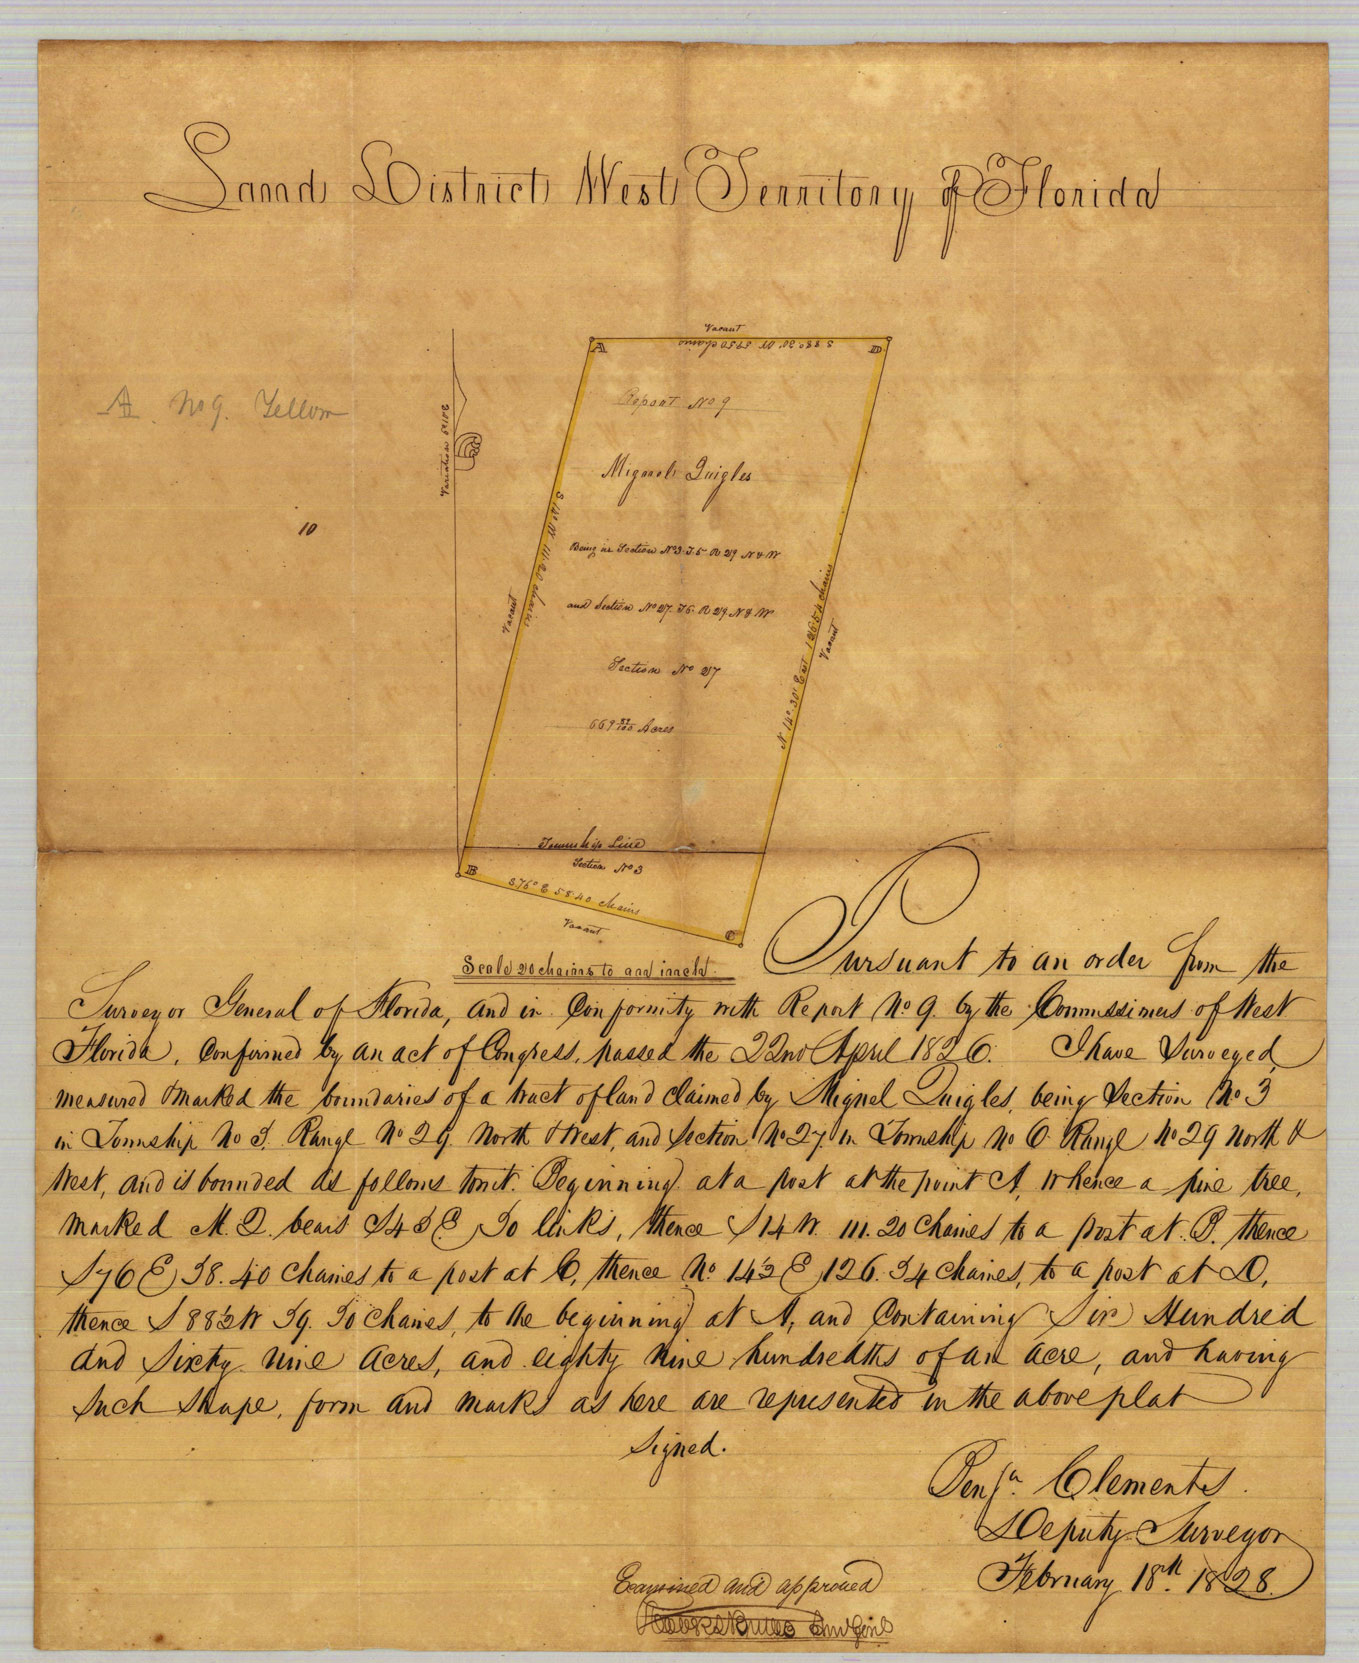 Land District West Territory of Florida
Vacant
S 88° 30' W 59.50 chains
A
D
A No 9. Yellow
Report No 9
Variation
Miguel Quigles
10
S 14° W 111.20 chains
Being in Section No 3. T. 5 R 29 N & W
and Section No 27. T 6. R 29 N & W
Vacant
N 14° 30' East 126.54 chains
Vacant
Section No 27
669 89/100 Acres
Township Line
Section No 3
B
S 76° E 58.40 chains
C
Vacant
Scale 20 chains to an inch
Pursuant to an order from the
Surveyor General of Florida, and in Conformity with Report No 9. by the Commissioners of West
Florida, Confirmed by an act of Congress, passed the 22nd April 1826. I have Surveyed,
measured & marked the boundaries of a tract of land claimed by Miguel Quigles, being Section No 3
in Township No 5. Range No 29. North & West, and Section No 27. in Township No 6. Range No 29 North &
West, and is bounded as follows towit. Beginning at a post at the point A, whence a pine tree,
marked M. Q. bears S 45 E 50 links, thence S 14 W. 111.20 Chaines to a post at B. thence
S 76 E 58.40 Chaines to a post at C, thence No 14½ E 126.54 Chaines, to a post at D,
thence S 88½ W 59.50 Chaines, to the beginning at A, and Containing Six Hundred
and Sixty nine Acres, and eighty nine hundredths of an acre, and having
Such Shape, form and marks as here are represented in the above plat
Signed.
Benja. Clements.
Deputy Surveyor
February 18th. 1828.
Examined and approved